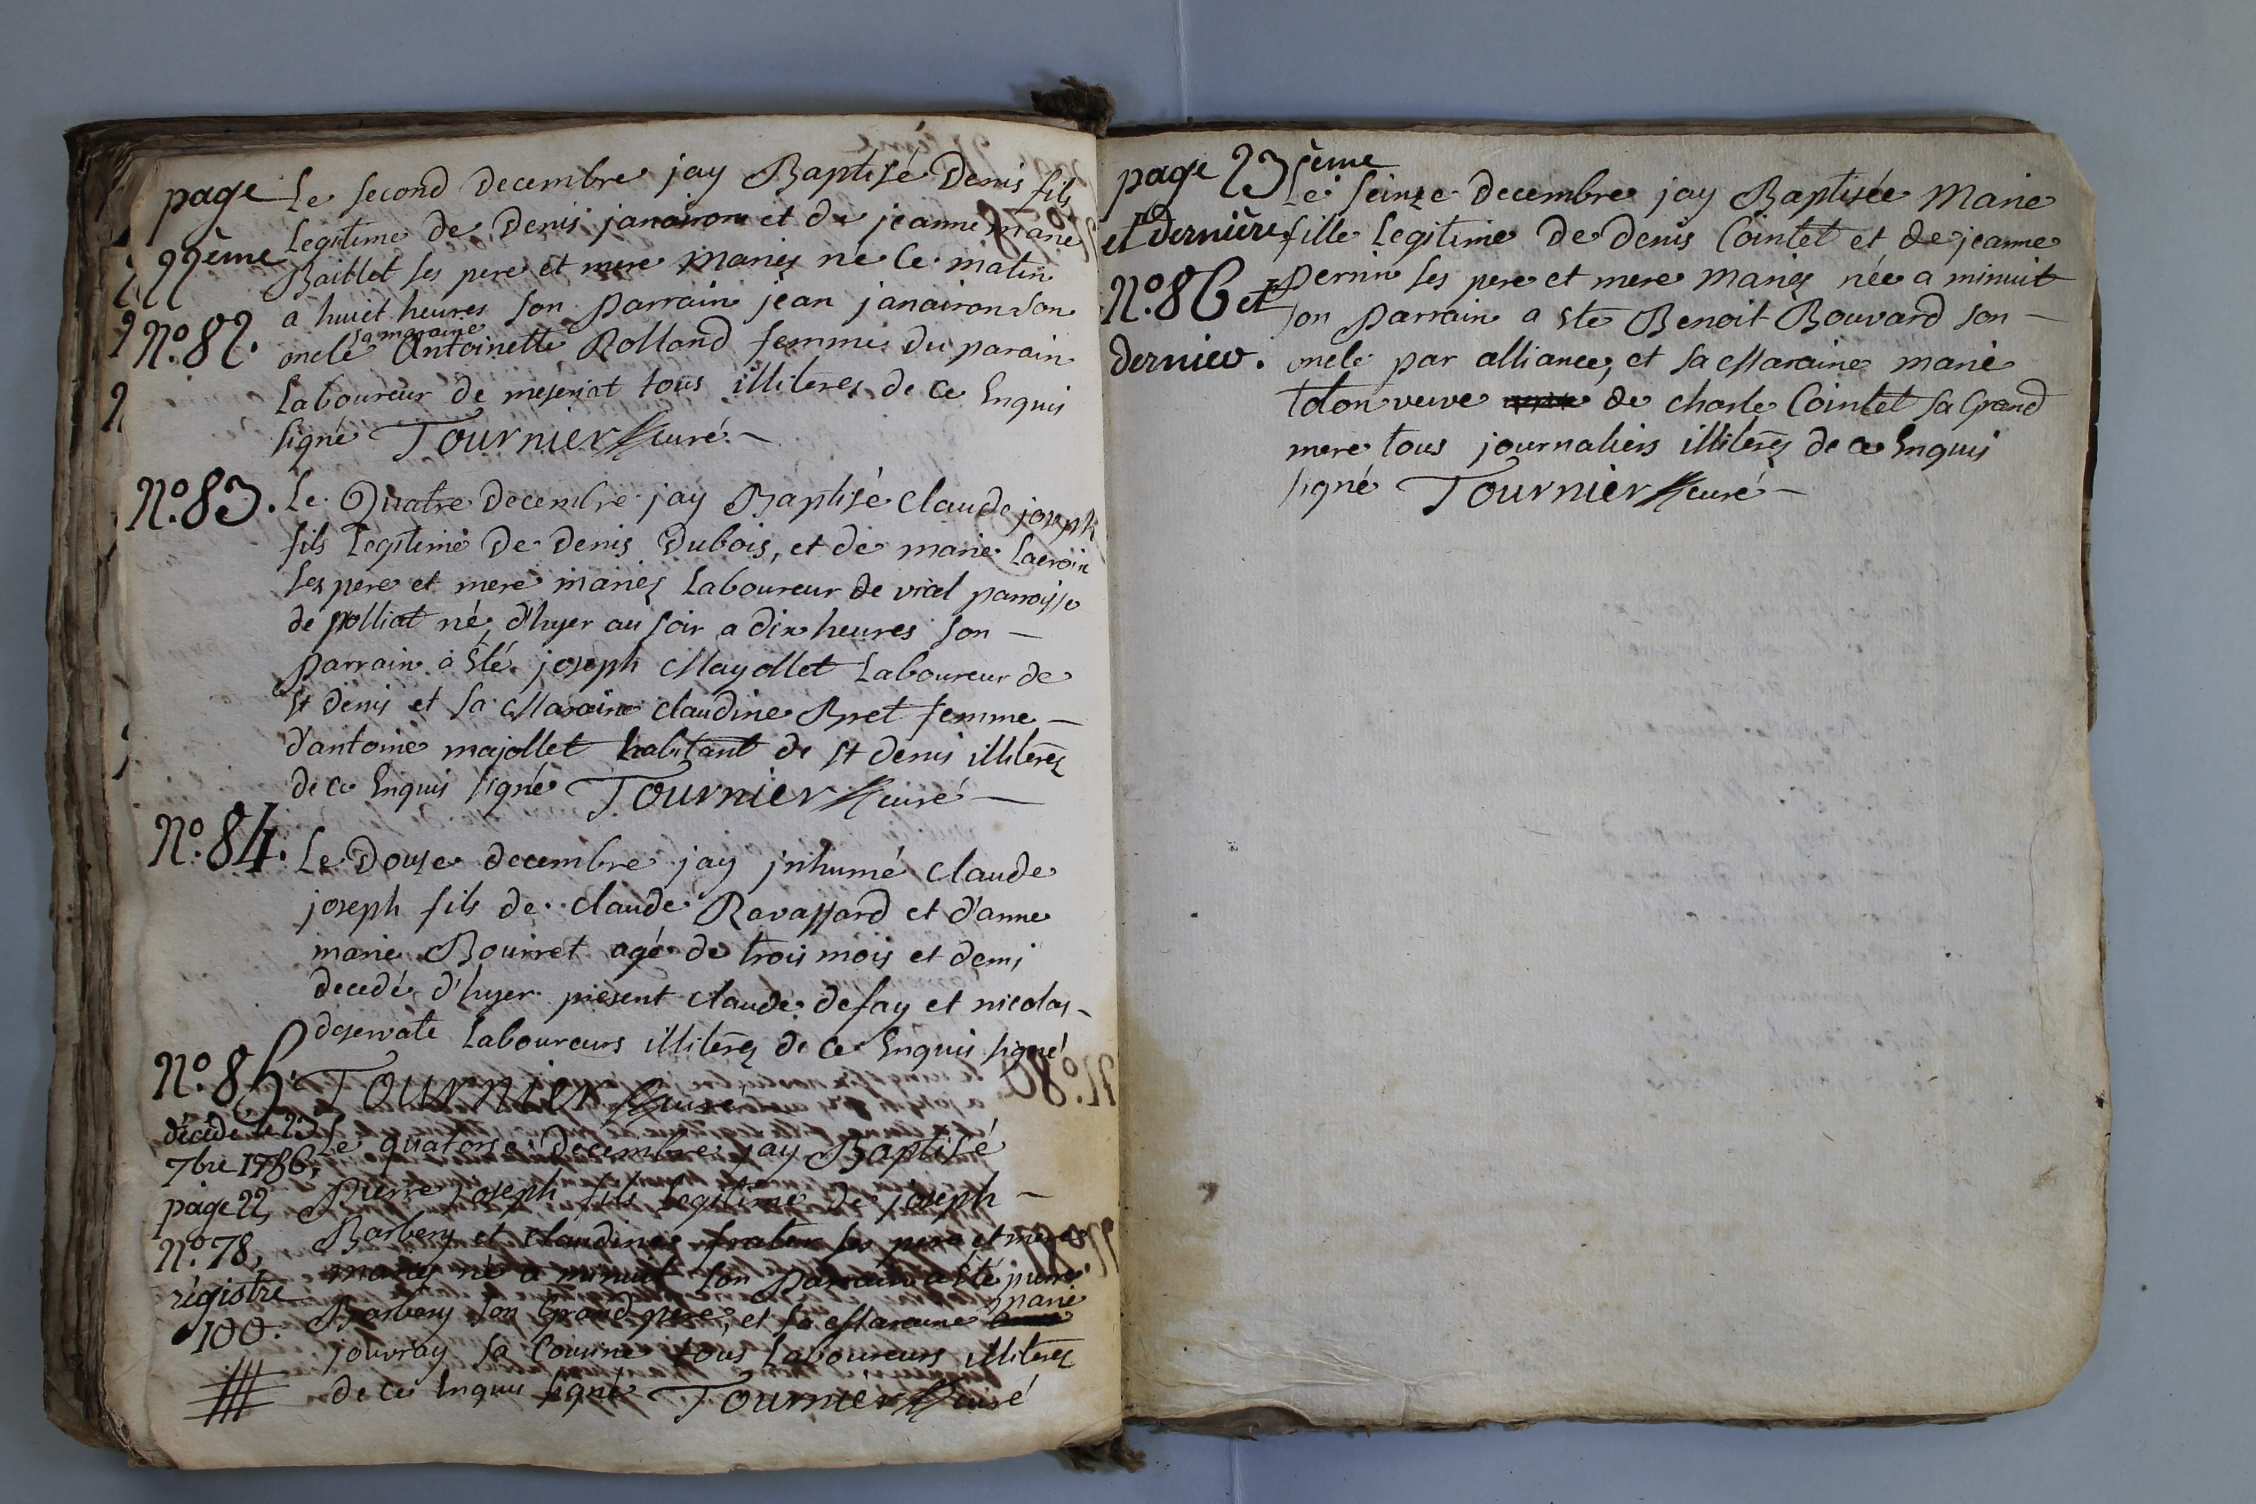 page
22ème
Nº. 82.
Le second decembre jay Baptisé Denis fils
Legitime de Denis janairon et de jeanne marie
Baiblet ses pere et mere mariés né ce matin
a huiet heures son parrain jean janairon son
sa maraine
oncle Antoinette Rolland femme du parain
Laboureur de meseriat tous illiteres de ce Enquis
signé Tournier curé
Nº. 83.
Le Quatre decembre jay Baptisé claude joseph
fils Legitime de Denis Dubois, et de marie Lacroix
ses pere et mere mariés Laboureur de vial parroisse
de polliat né d'hyer au soir a dix heures son
parrain a Eté joseph Mayollet Laboureur de
St denis et sa Maraine claudine Bret femme
d'antoine majollet habitant de St denis illiterés
de ce Enquis signé Tournier curé
Nº. 84.
Le Douze decembre jay jnhumé claude
joseph fils de claude Ravassard et d'anne
marie Bourret agé de trois mois et demi
decedé d'hyer present claude defay et nicolas
deservate Laboureurs illiterés de ce Enquis signé
Tournier curé
Nº. 85.
décédé le 23
7bre 1786,
page 22,
Nº. 78,
régistre
100.
Le quatorse decembre jay Baptisé
Pierre joseph fils Legitime de joseph
Barbery et claudine frater ses pere et mere
mariés né a minuit son parrain a Eté pierre
marie
Barbery son Grand pere, et sa Maraine
jouvray sa Cousine tous Laboureurs illiterés
de ce Enquis signé Tournier curé
page 23ème
et dernière
Nº. 86 et
dernier.
Le seinze decembre jay Baptisée Marie
fille Legitime de denis Cointet et de jeanne
perrin ses pere et mere mariés née a minuit
son parrain a Eté Benoit Bouvard son
oncle par alliance, et sa Maraine marie
tolon veuve de charle Cointet sa Grand
mere tous journaliers illiterés de ce Enquis
signé Tournier curé